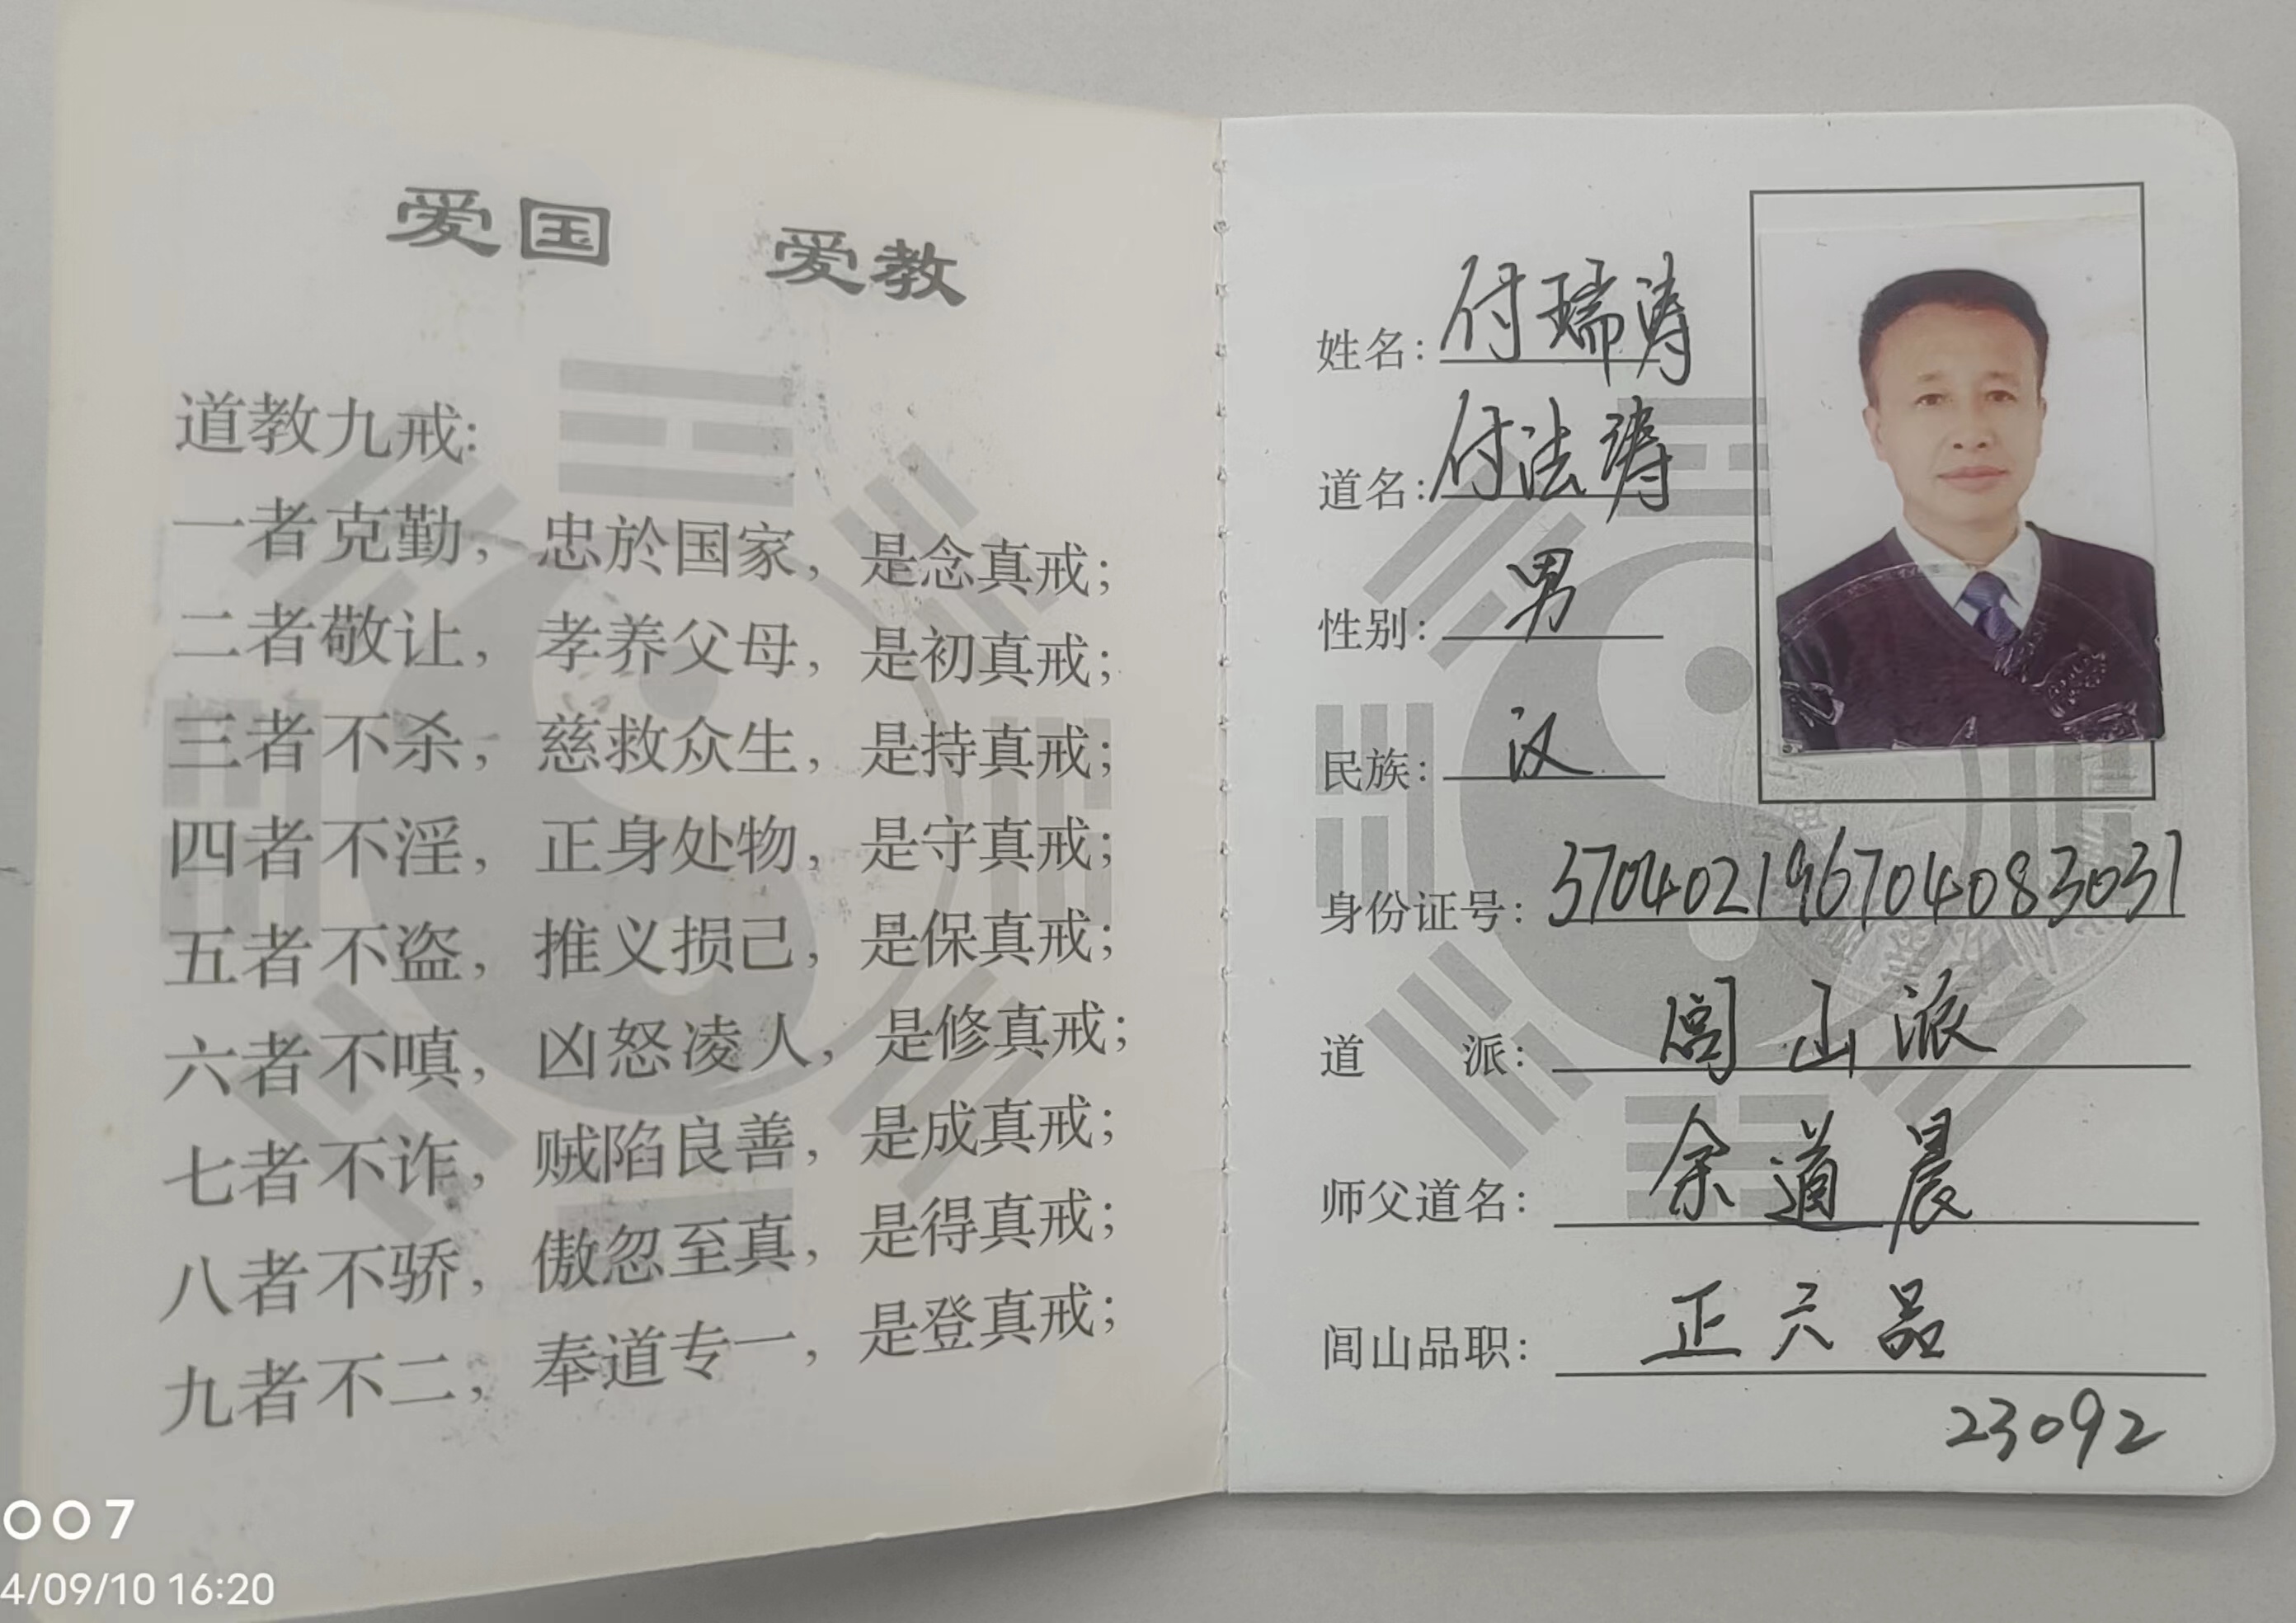 爱国 爱教
道教九戒:
一者克勤，忠於国家，是念真戒；
二者敬让，孝养父母，是初真戒；
三者不杀，慈救众生，是持真戒；
四者不淫，正身处物，是守真戒；
五者不盗，推义损己，是保真戒；
六者不嗔，凶怒凌人，是修真戒；
七者不诈，贼陷良善，是成真戒；
八者不骄，傲忽至真，是得真戒；
九者不二，奉道专一，是登真戒；
姓名：付瑞涛
道名：付法涛
性别：男
民族：汉
身份证号：370402196704083031
道 派：闾山派
师父道名：余道晨
闾山品职：正六品
23092
007
4/09/10 16:20